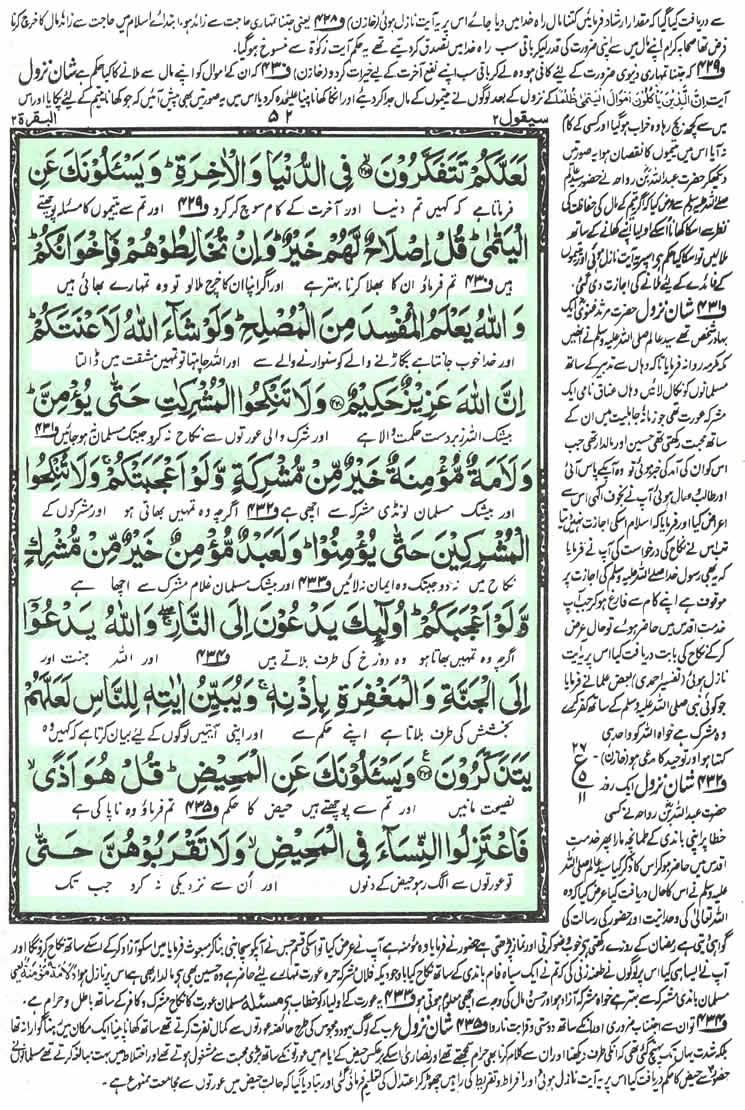 سے دریافت کیا گیا کہ مقدار ارشاد فرمائیں کتنا مال راہ خدا میں دیا جائے اس پر یہ آیت نازل ہوئی (خازن) و۴۲۸ یعنی جتنا تمہاری حاجت سے زائد ہو، ابتدائے اسلام میں حاجت سے زائد مال کا خرچ کرنا
فرض تھا صحابہ کرام اپنے مال میں سے اپنی ضرورت کی قدر لیکر باقی سب راہ خدا میں تصدق کر دیتے تھے یہ حکم آیت زکوٰۃ سے منسوخ ہو گیا۔
و۴۲۹ کہ جتنا تمہاری دنیوی ضرورت کے لئے کافی ہو وہ لے کر باقی سب اپنے نفع آخرت کے لیے خیرات کر دو (خازن) و۴۳۰ کہ ان کے اموال کو اپنے مال سے ملانے کا کیا حکم ہے شان نزول
آیت اِنَّ الَّذِیْنَ یَاْکُلُوْنَ اَمْوَالَ الْیَتٰمٰی ظُلْمًا کے نزول کے بعد لوگوں نے یتیموں کے مال جدا کر دیئے اور انکا کھانا پینا علیحدہ کر دیا اس میں یہ صورتیں بھی پیش آئیں کہ جو کھانا یتیم کے لئے پکایا اور اس
سیقول ۲
۵۲
البقرۃ ۲
لَعَلَّكُمْ تَتَفَكَّرُوْنَ ﴿۲۱۹﴾ فِی الدُّنْیَا وَ الْاٰخِرَةِ ؕ وَ یَسْـَٔلُوْنَكَ عَنِ
فرماتا ہے کہ کہیں تم دنیا اور آخرت کے کام سوچ کر کرو و۴۲۹ اور تم سے یتیموں کا مسئلہ پوچھتے
الْیَتٰمٰی ؕ قُلْ اِصْلَاحٌ لَّهُمْ خَیْرٌ ؕ وَ اِنْ تُخَالِطُوْهُمْ فَاِخْوَانُكُمْ ؕ
ہیں و۴۳۰ تم فرماؤ ان کا بھلا کرنا بہتر ہے اور اگر اپنا ان کا خرچ ملا لو تو وہ تمہارے بھائی ہیں
وَ اللّٰهُ یَعْلَمُ الْمُفْسِدَ مِنَ الْمُصْلِحِ ؕ وَ لَوْ شَآءَ اللّٰهُ لَاَعْنَتَكُمْ ؕ
اور خدا خوب جانتا ہے بگاڑنے والے کو سنوارنے والے سے اور اللہ چاہتا تو تمہیں مشقت میں ڈالتا
اِنَّ اللّٰهَ عَزِیْزٌ حَكِیْمٌ ﴿۲۲۰﴾ وَ لَا تَنْكِحُوا الْمُشْرِكٰتِ حَتّٰی یُؤْمِنَّ ؕ
بیشک اللہ زبردست حکمت والا ہے اور شرک والی عورتوں سے نکاح نہ کرو جب تک مسلمان نہ ہو جائیں و۴۳۱
وَ لَاَمَةٌ مُّؤْمِنَةٌ خَیْرٌ مِّنْ مُّشْرِكَةٍ وَّ لَوْ اَعْجَبَتْكُمْ ۚ وَ لَا تُنْكِحُوا
اور بیشک مسلمان لونڈی مشرکہ سے اچھی ہے و۴۳۲ اگرچہ وہ تمہیں بھاتی ہو اور مشرکوں کے
الْمُشْرِكِیْنَ حَتّٰی یُؤْمِنُوْا ؕ وَ لَعَبْدٌ مُّؤْمِنٌ خَیْرٌ مِّنْ مُّشْرِكٍ
نکاح میں نہ دو جب تک وہ ایمان نہ لائیں و۴۳۳ اور بیشک مسلمان غلام مشرک سے اچھا ہے
وَّ لَوْ اَعْجَبَكُمْ ؕ اُولٰٓىِٕكَ یَدْعُوْنَ اِلَی النَّارِ ۖۚ وَ اللّٰهُ یَدْعُوْۤا
اگرچہ وہ تمہیں بھاتا ہو وہ دوزخ کی طرف بلاتے ہیں و۴۳۴ اور اللہ جنت اور
اِلَی الْجَنَّةِ وَ الْمَغْفِرَةِ بِاِذْنِهٖ ۚ وَ یُبَیِّنُ اٰیٰتِهٖ لِلنَّاسِ لَعَلَّهُمْ
بخشش کی طرف بلاتا ہے اپنے حکم سے اور اپنی آیتیں لوگوں کے لئے بیان کرتا ہے کہ کہیں وہ
یَتَذَكَّرُوْنَ ﴿۲۲۱﴾ وَ یَسْـَٔلُوْنَكَ عَنِ الْمَحِیْضِ ؕ قُلْ هُوَ اَذًی ۙ
نصیحت مانیں اور تم سے پوچھتے ہیں حیض کا حکم و۴۳۵ تم فرماؤ وہ ناپاکی ہے
فَاعْتَزِلُوا النِّسَآءَ فِی الْمَحِیْضِ ۙ وَ لَا تَقْرَبُوْهُنَّ حَتّٰی
تو عورتوں سے الگ رہو حیض کے دنوں اور ان سے نزدیکی نہ کرو جب تک
میں سے کچھ بچ رہا وہ خراب ہو گیا اور کسی کے کام
نہ آیا اس میں یتیموں کا نقصان ہوا یہ صورتیں
دیکھ کر حضرت عبداللہ بن رواحہ نے حضور سید عالم
صلی اللہ علیہ وسلم سے عرض کیا کہ اگر یتیم کے مال کی حفاظت کی
نظر سے اسکا کھانا اسکے اولیاء اپنے کھانے کے ساتھ
ملالیں تو اسکا کیا حکم ہے اس پر یہ آیت نازل ہوئی اور یتیموں
کے فائدے کے لئے ملانے کی اجازت دی گئی۔
و۴۳۱ شان نزول حضرت مرثد غنوی ایک
بہادر شخص تھے سید عالم صلی اللہ علیہ وسلم نے انھیں
مکہ مکرمہ روانہ فرمایا تاکہ وہاں سے تدبیر کے ساتھ
مسلمانوں کو نکال لائیں وہاں عناق نامی ایک
مشرکہ عورت تھی جو زمانۂ جاہلیت میں ان کے
ساتھ محبت رکھتی تھی حسین اور مالدار تھی جب
اس کو ان کی آمد کی خبر ہوئی تو وہ آپکے پاس آئی
اور طالب وصال ہوئی آپ نے بخوف الٰہی اس سے
اعراض کیا اور فرمایا کہ اسلام اسکی اجازت نہیں دیتا
تب اس نے نکاح کی درخواست کی آپ نے فرمایا
کہ یہ بھی رسول خدا صلی اللہ علیہ وسلم کی اجازت پر
موقوف ہے اپنے کام سے فارغ ہو کر جب آپ
خدمت اقدس میں حاضر ہوئے تو حال عرض
کر کے نکاح کی بابت دریافت کیا اس پر یہ آیت
نازل ہوئی (تفسیر احمدی) بعض علما نے فرمایا
جو کوئی نبی صلی اللہ علیہ وسلم کے ساتھ کفر کرے
وہ مشرک ہے خواہ اللہ کو واحد ہی
کہتا ہو اور توحید کا مدعی ہو (خازن)۔
۲۷
ع
۵
۱۱
و۴۳۲ شان نزول ایک روز
حضرت عبداللہ بن رواحہ نے کسی
خطا پر اپنی باندی کے طمانچہ مارا پھر خدمت
اقدس میں حاضر ہو کر اس کا ذکر کیا سید عالم صلی اللہ
علیہ وسلم نے اس کا حال دریافت کیا عرض کیا کہ وہ
اللہ تعالیٰ کی وحدانیت اور حضور کی رسالت کی
گواہی دیتی ہے رمضان کے روزے رکھتی ہے خوب وضو کرتی اور نماز پڑھتی ہے حضور نے فرمایا وہ مؤمنہ ہے آپ نے عرض کیا تو اسکی قسم جس نے آپکو سچا نبی بنا کر مبعوث فرمایا میں اسکو آزاد کر کے اسکے ساتھ نکاح کرونگا اور
آپ نے ایسا ہی کیا اس پر لوگوں نے طعنہ زنی کی کہ تم نے ایک سیاہ فام باندی کے ساتھ نکاح کیا باوجودیکہ فلاں مشرکہ حرہ عورت تمہارے لئے حاضر ہے وہ حسین بھی ہے مالدار بھی ہے اس پر نازل ہوا وَلَاَمَةٌ مُّؤْمِنَةٌ یعنی
مسلمان باندی مشرکہ سے بہتر ہے خواہ مشرکہ آزاد ہو اور حسن و مال کی وجہ سے اچھی معلوم ہوتی ہو و۴۳۳ یہ عورت کے اولیاء کو خطاب ہے مسئلہ مسلمان عورت کا نکاح مشرک و کافر کے ساتھ باطل و حرام ہے۔
و۴۳۴ تو ان سے اجتناب ضروری اور انکے ساتھ دوستی و قرابت ناروا و۴۳۵ شان نزول عرب کے لوگ یہود و مجوس کی طرح حائضہ عورتوں سے کمال نفرت کرتے تھے ساتھ کھانا پینا ایک مکان میں رہنا گوارا نہ تھا
بلکہ شدت یہاں تک پہنچ گئی تھی کہ انکی طرف دیکھنا اور ان سے کلام کرنا بھی حرام سمجھتے تھے اور نصاریٰ اسکے برعکس حیض کے ایام میں عورتوں کے ساتھ بڑی محبت سے مشغول ہوتے تھے اور اختلاط میں بہت مبالغہ کرتے تھے مسلمانوں نے
حضور سے حیض کا حکم دریافت کیا اس پر یہ آیت نازل ہوئی اور افراط و تفریط کی راہیں چھوڑ کر اعتدال کی تعلیم فرمائی گئی اور بتا دیا گیا کہ حالت حیض میں عورتوں سے مجامعت ممنوع ہے۔